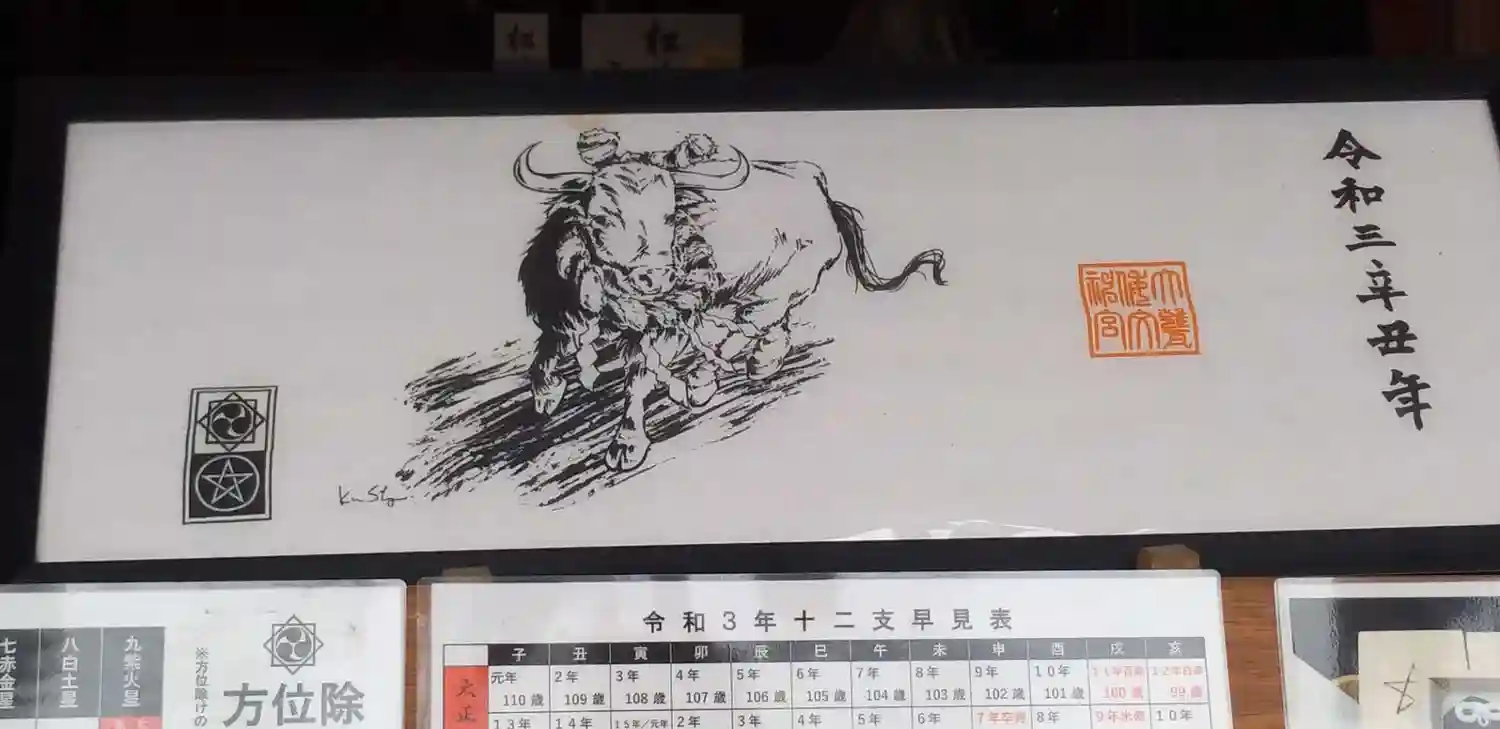 令和三辛丑年
令和3年十二支早見表
子 丑 寅 卯 辰 巳 午 未 申 酉 戌 亥
大正
元年 2年 3年 4年 5年 6年 7年 8年 9年 10年
110歳 109歳 108歳 107歳 106歳 105歳 104歳 103歳 102歳 101歳 100歳 99歳
13年 14年 15年/元年 2年 3年 4年 5年 6年 7年卒寿 8年 9年 10年
九紫火星
八白土星
七赤金星
※方位除けの
方位除